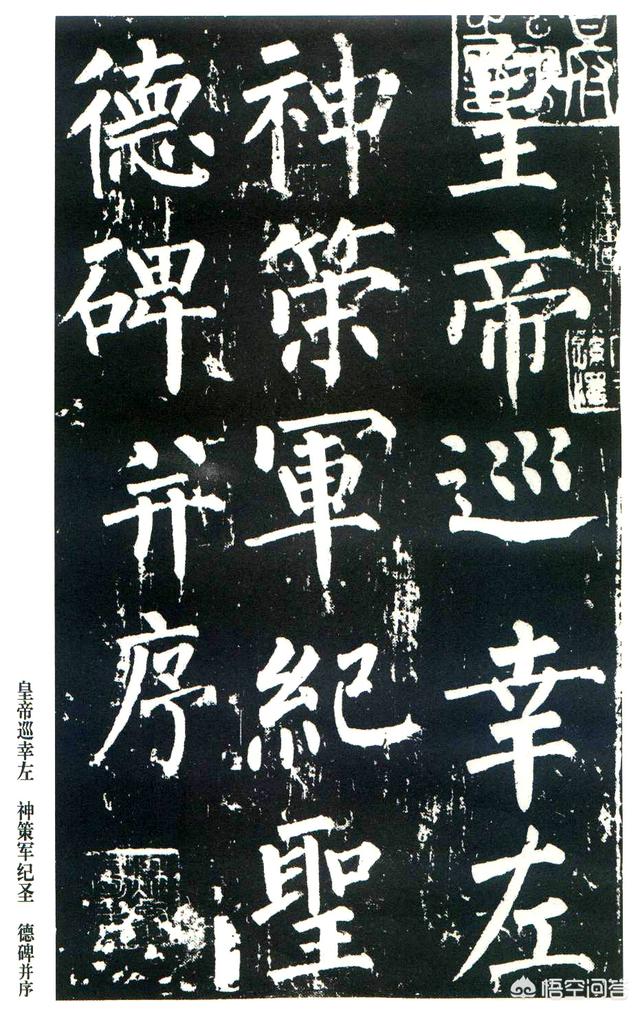 皇帝巡幸左
神策軍紀聖
德碑并序
皇帝巡幸左 神策军纪圣 德碑并序
悟空问答